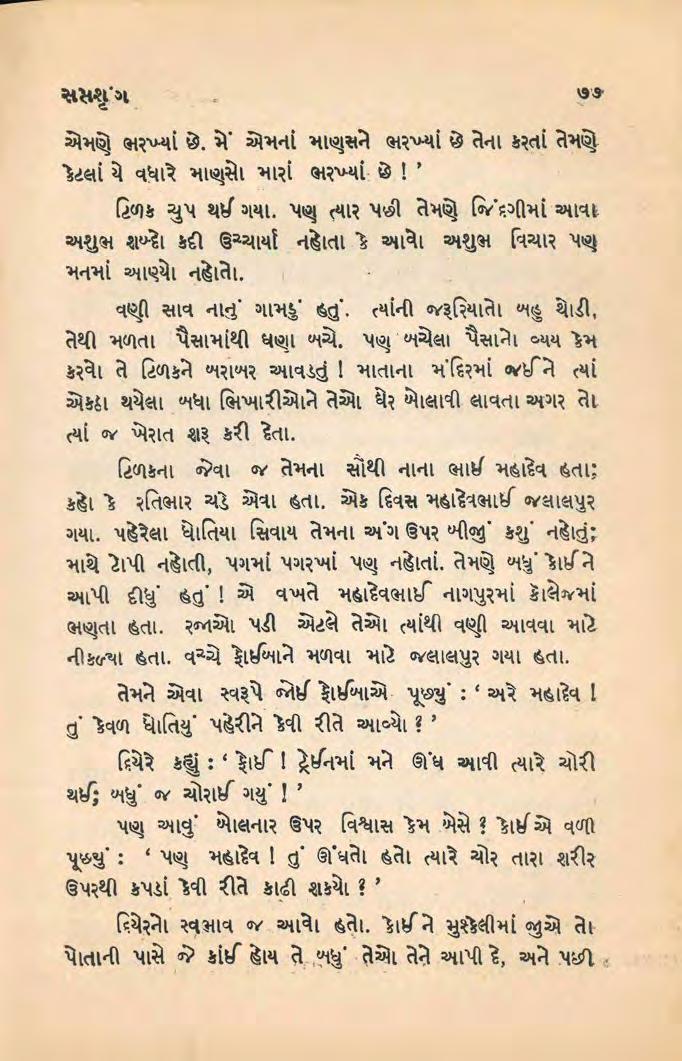 સસશૃંગ ૭૭
એમણે ભરખ્યાં છે. મેં એમનાં માણસને ભરખ્યાં છે તેના કરતાં તેમણે
કેટલાં યે વધારે માણસો મારાં ભરખ્યાં છે ! ’
ટિળક ચુપ થઈ ગયા. પણ ત્યાર પછી તેમણે જિંદગીમાં આવા
અશુભ શબ્દો કદી ઉચ્ચાર્યા નહોતા કે આવો અશુભ વિચાર પણ
મનમાં આણ્યો નહોતો.
વણી સાવ નાનું ગામડું હતું. ત્યાંની જરૂરિયાતો બહુ થોડી,
તેથી મળતા પૈસામાંથી ઘણા બચે. પણ બચેલા પૈસાનો વ્યય કેમ
કરવો તે ટિળકને બરાબર આવડતું ! માતાના મંદિરમાં જઈને ત્યાં
એકઠા થયેલા બધા ભિખારીઓને તેઓ ઘેર બોલાવી લાવતા અગર તો
ત્યાં જ ખેરાત શરૂ કરી દેતા.
ટિળકના જેવા જ તેમના સૌથી નાના ભાઈ મહાદેવ હતા;
કહો કે રતિભાર ચડે એવા હતા. એક દિવસ મહાદેવભાઈ જલાલપુર
ગયા. પહેરેલા ધોતિયા સિવાય તેમના અંગ ઉપર બીજું કશું નહોતું;
માથે ટોપી નહોતી, પગમાં પગરખાં પણ નહોતાં. તેમણે બધું કોઈને
આપી દીધું હતું ! એ વખતે મહાદેવભાઈ નાગપુરમાં કૉલેજમાં
ભણતા હતા. રજાઓ પડી એટલે તેઓ ત્યાંથી વણી આવવા માટે
નીકળ્યા હતા. વચ્ચે ફોઈબાને મળવા માટે જલાલપુર ગયા હતા.
તેમને એવા સ્વરૂપે જોઈ ફોઈબાએ પૂછ્યું : ‘ અરે મહાદેવ !
તું કેવળ ધોતિયું પહેરીને કેવી રીતે આવ્યો ? ’
દિયેરે કહ્યું : ‘ ફોઈ ! ટ્રેઈનમાં મને ઊંઘ આવી ત્યારે ચોરી
થઈ; બધું જ ચોરાઈ ગયું ! ’
પણ આવું બોલનાર ઉપર વિશ્વાસ કેમ બેસે ? કોઈએ વળી
પૂછ્યું : ‘ પણ મહાદેવ ! તું ઊંઘતો હતો ત્યારે ચોર તારા શરીર
ઉપરથી કપડાં કેવી રીતે કાઢી શક્યો ? ’
દિયેરનો સ્વભાવ જ આવો હતો. કોઈને મુશ્કેલીમાં જુએ તો
પોતાની પાસે જે કાંઈ હોય તે બધું તેઓ તેને આપી દે, અને પછી